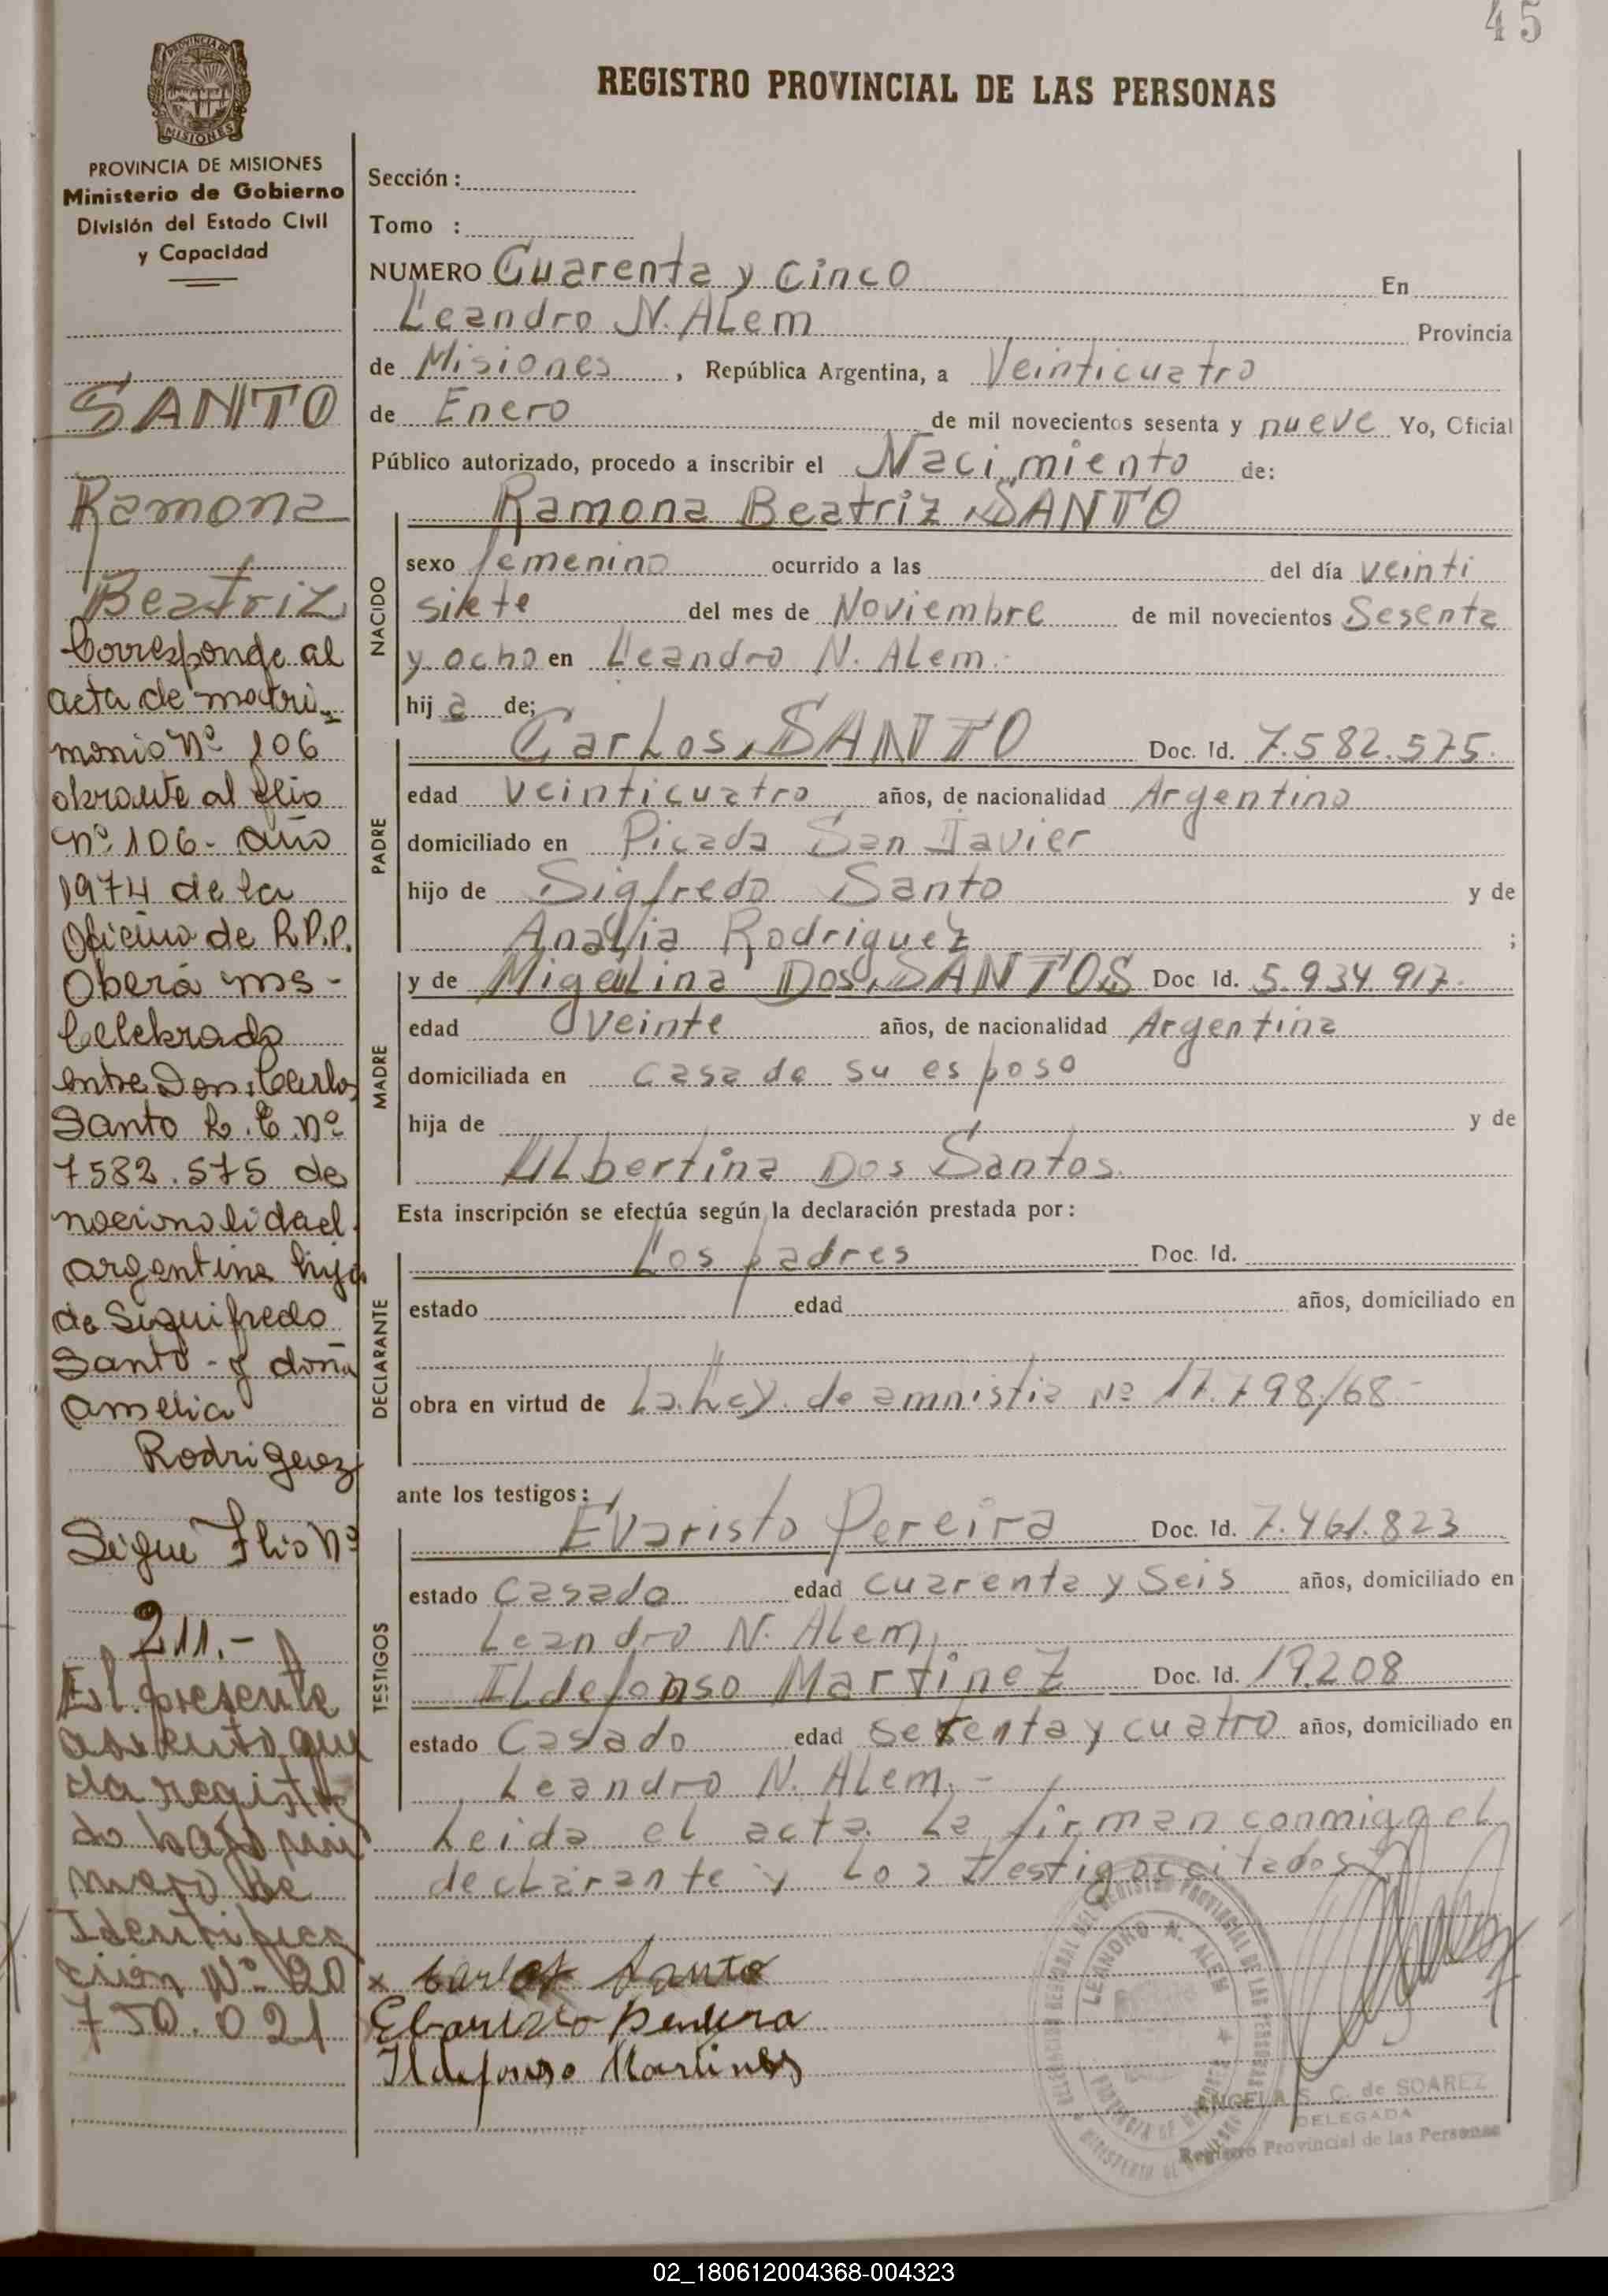 45
REGISTRO PROVINCIAL DE LAS PERSONAS
PROVINCIA DE MISIONES
Ministerio de Gobierno
División del Estado Civil
y Capacidad
SANTO
Ramona
Beatriz
Corresponde al
acta de matri
monio Nº 106
obrante al flio
Nº 106- año
1974 de la
Oficina de R.P.P.
Oberá ms-
Celebrado
entre Don: Carlos
Santo L.E. nº
7582.575 de
nacionalidad
argentina hijo
de Siguifredo
Santo - y doña
Amelia
Rodriguez
Sigue Flio Nº
211.-
El presente
asiento que
da registra
do bajo nú
mero de
Identifica
ción Nº 20
750.021
Sección :
Tomo :
NUMERO Cuarenta y Cinco En
Leandro N. ALem Provincia
de Misiones , República Argentina, a Veinticuatro
de Enero de mil novecientos sesenta y nueve Yo, Oficial
Público autorizado, procedo a inscribir el Nacimiento de:
NACIDO
Ramona Beatriz SANTO
sexo femenino ocurrido a las del día veinti
siete del mes de Noviembre de mil novecientos Sesenta
y ocho en Leandro N. ALem.
hij a de;
PADRE
CarLos SANTO Doc. Id. 7.582.575.
edad veinticuatro años, de nacionalidad Argentino
domiciliado en Picada San Javier
hijo de Sigfredo Santo y de
Analia Rodriguez ;
MADRE
y de Miguelina Dos SANTOS Doc Id. 5.934.917.
edad veinte años, de nacionalidad Argentina
domiciliada en casa de su esposo
hija de y de
ALbertina Dos Santos.
Esta inscripción se efectúa según la declaración prestada por :
DECLARANTE
Los padres Doc. Id.
estado edad años, domiciliado en
obra en virtud de La Ley de amnistia Nº 17.798/68-
ante los testigos :
TESTIGOS
Evaristo Pereira Doc. Id. 7.461.823
estado Casado edad cuarenta y Seis años, domiciliado en
Leandro N. ALem,
ILdefonso Martinez Doc. Id. 19.208
estado Casado edad setenta y cuatro años, domiciliado en
Leandro N. ALem.-
Leida el acta La firman conmigo el
decLarante y Los Testigos citados
x Carlos Santo
Ebaristo Pereira
Ildefonso Martines
LEANDRO N. ALEM
ANGELA S. C. de SOAREZ
DELEGADA
Registro Provincial de las Personas
02_180612004368-004323